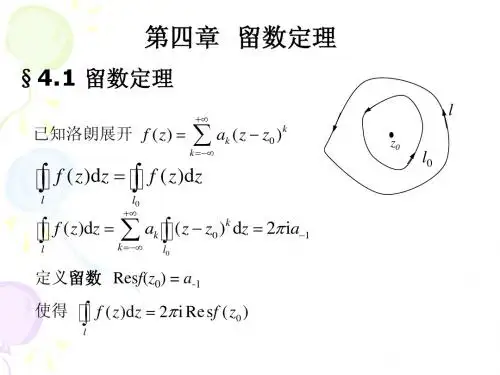 第四章 留数定理
§4.1 留数定理
已知洛朗展开 f(z) = ∑_{k=-∞}^{+∞} a_k (z − z_0)^k
∮_l f(z)dz = ∮_{l_0} f(z)dz
∮_l f(z)dz = ∑_{k=-∞}^{+∞} a_k ∮_{l_0} (z − z_0)^k dz = 2πia_{−1}
定义留数 Resf(z_0) = a_{-1}
使得 ∮_l f(z)dz = 2πi Resf(z_0)
l
z_0
l_0